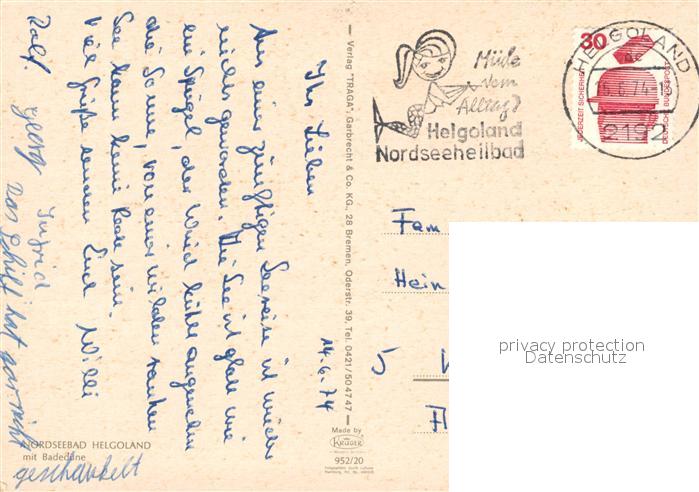 Ihr Lieben
14.6.74
Aus einer zünftigen Seereise ist wieder
nichts geworden. Die See ist glatt wie
ein Spiegel, der Wind kühl angenehm
die Sonne, von einer wilden rauhen
See kann keine Rede sein.
Viele Grüße senden Euch Willi
Ralf. Georg Ingrid
Das Schiff hat gar nicht
geschaukelt
NORDSEEBAD HELGOLAND
mit Badedüne
— Verlag "TRAGA", Garbrecht & Co. KG., 28 Bremen, Oderstr. 39, Tel. 0421/504747 —
Made by
KRÜGER
952/20
Müde
vom
Alltag?
Helgoland
Nordseeheilbad
HELGOLAND
2192
30
JEDERZEIT SICHERHEIT
DEUTSCHE BUNDESPOST
Fam
Hein
5
privacy protection
Datenschutz